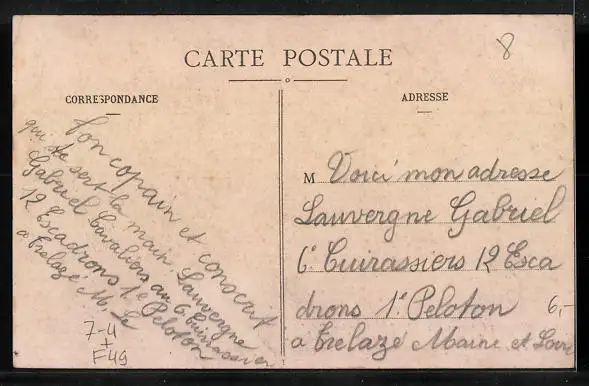 CARTE POSTALE
8
CORRESPONDANCE
ADRESSE
Ton copain et conscrit
qui te sert la main Lauvergne
Gabriel Cavaliers au 6 Cuirassier
12 Escadrons 1e Peloton
a Trelaze M. Le
7-4
+
F49
M Voici mon adresse
Lauvergne Gabriel
6e Cuirassiers 12 Esca
drons 1e Peloton
a Trelazé Maine et Loire
6,-